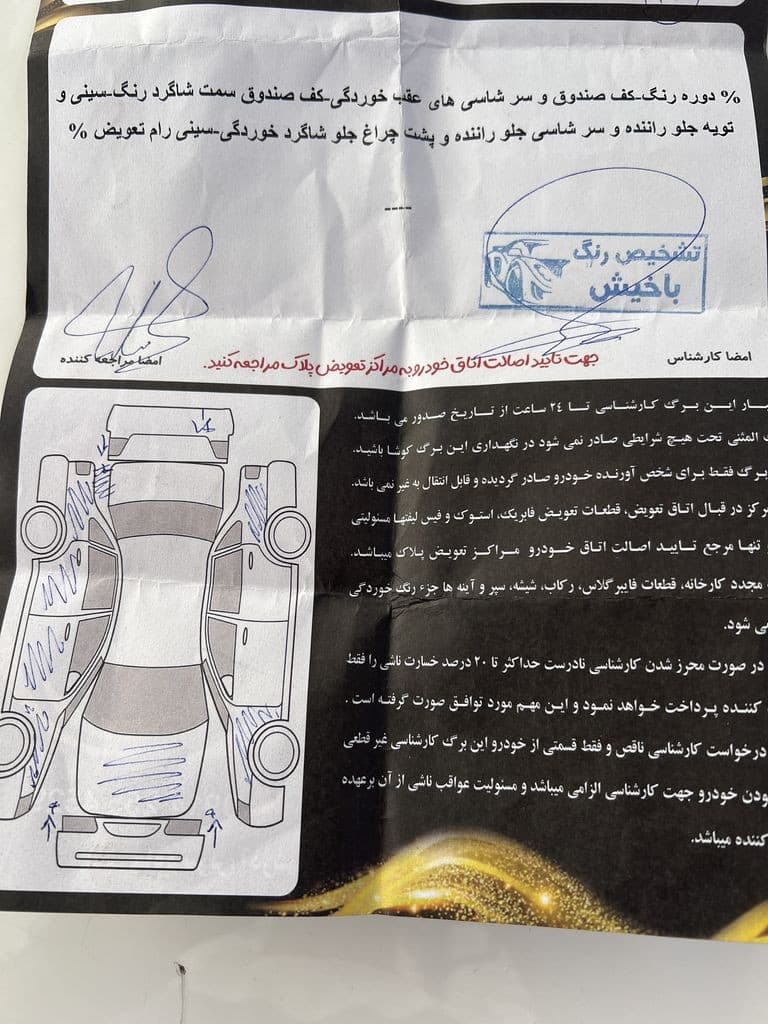 % دوره رنگ-کف صندوق و سر شاسی های عقب خوردگی-کف صندوق سمت شاگرد رنگ-سینی و
تویه جلو راننده و سر شاسی جلو راننده و پشت چراغ جلو شاگرد خوردگی-سینی رام تعویض %
----
تشخیص رنگ
باخیش
امضا کارشناس
جهت تایید اصالت اتاق خودرو به مراکز تعویض پلاک مراجعه کنید.
امضا مراجعه کننده
این برگ کارشناسی تا ۲۴ ساعت از تاریخ صدور می باشد.
المثنی تحت هیچ شرایطی صادر نمی شود در نگهداری این برگ کوشا باشید.
برگ فقط برای شخص آورنده خودرو صادر گردیده و قابل انتقال به غیر نمی باشد.
در قبال اتاق تعویض، قطعات تعویض فابریک، استوک و فیس لیفتها مسئولیتی
تنها مرجع تایید اصالت اتاق خودرو مراکز تعویض پلاک میباشد.
مجدد کارخانه، قطعات فایبرگلاس، رکاب، شیشه، سپر و آینه ها جزء رنگ خوردگی
شود.
در صورت محرز شدن کارشناسی نادرست حداکثر تا ۲۰ درصد خسارت ناشی را فقط
کننده پرداخت خواهد نمود و این مهم مورد توافق صورت گرفته است.
درخواست کارشناسی ناقص و فقط قسمتی از خودرو این برگ کارشناسی غیر قطعی
خودرو جهت کارشناسی الزامی میباشد و مسئولیت عواقب ناشی از آن برعهده
کننده میباشد.